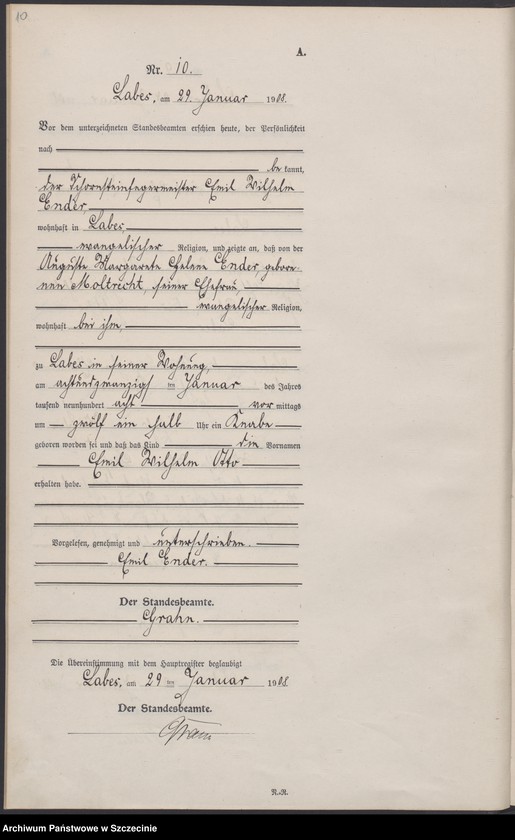 10.
A.
Nr. 10.
Labes, am 29. Januar 1908.
Vor dem unterzeichneten Standesbeamten erschien heute, der Persönlichkeit
nach
be kannt,
der Schornsteinfegermeister Emil Wilhelm
Ender,
wohnhaft in Labes
evangelischer Religion, und zeigte an, daß von der
Auguste Margarete Helene Ender, gebore-
nen Moltrecht, seiner Ehefrau,
evangelischer Religion,
wohnhaft bei ihm,
zu Labes in seiner Wohnung,
am achtundzwanzigsten Januar des Jahres
tausend neunhundert acht vor mittags
um zwölf ein halb Uhr ein Knabe
geboren worden sei und daß das Kind die Vornamen
Emil Wilhelm Otto
erhalten habe.
Vorgelesen, genehmigt und unterschrieben.
Emil Ender.
Der Standesbeamte.
Grahn.
Die Übereinstimmung mit dem Hauptregister beglaubigt
Labes, am 29 ten Januar 1908
Der Standesbeamte.
N.-R.
Archiwum Państwowe w Szczecinie